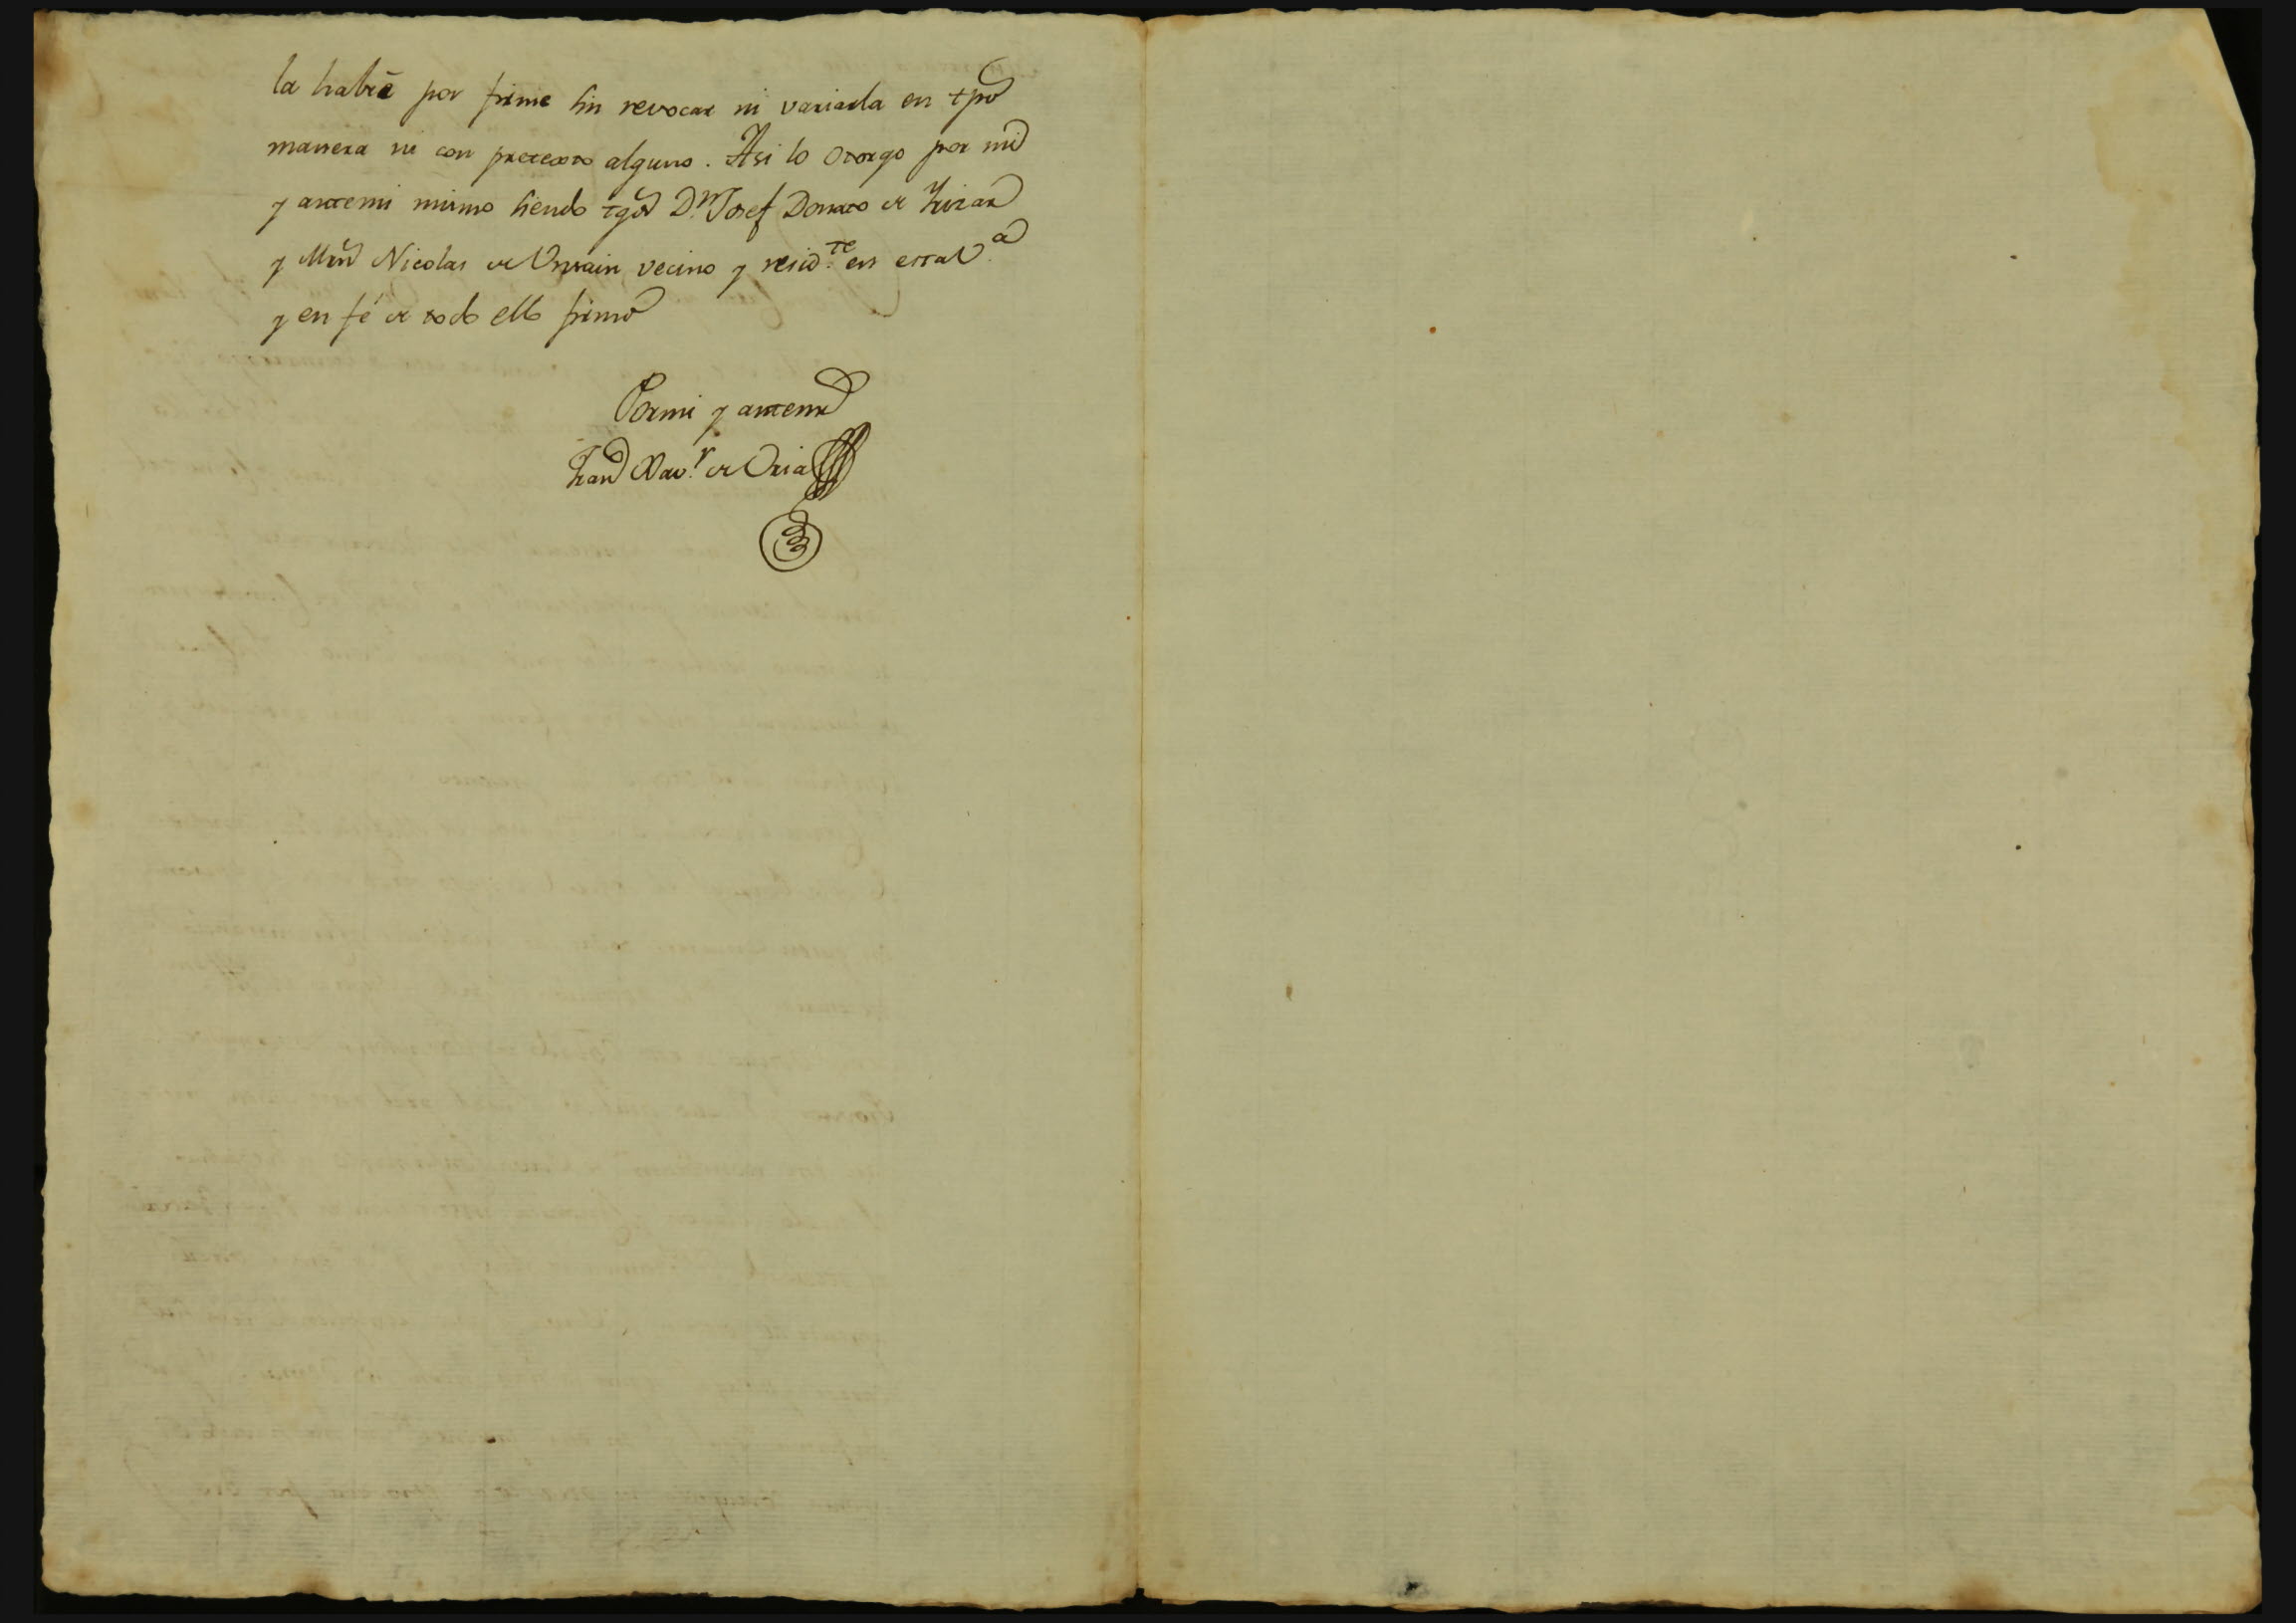 la habré por firme sin revocar ni variarla en tpo
manera ni con pretexto alguno. Asi lo otorgo por mi
y antemi mismo siendo tgos Dn Josef Donato de
y Nicolas de vecino y residte en esta Va
y en fé de todo ello firmo
Pormi y antemi
Xavr de Oria